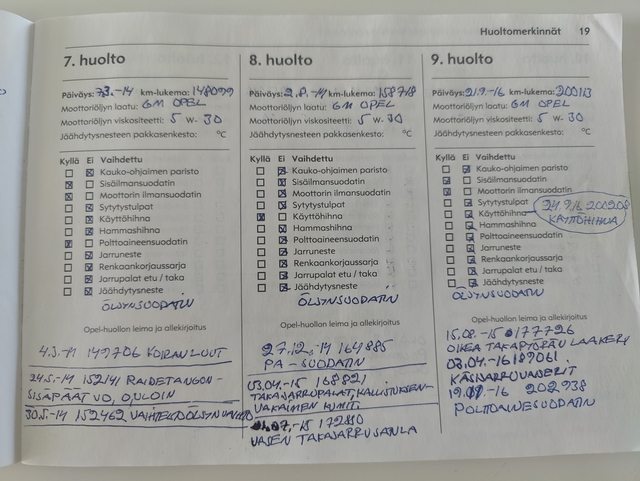 Huoltomerkinnät 19
7. huolto
Päiväys: 7.3.-14 km-lukema: 148099
Moottoriöljyn laatu: GM OPEL
Moottoriöljyn viskositeetti: 5 W- 30
Jäähdytysnesteen pakkasenkesto: °C
Kyllä Ei Vaihdettu
Kauko-ohjaimen paristo
Sisäilmansuodatin
Moottorin ilmansuodatin
Sytytystulpat
Käyttöhihna
Hammashihna
Polttoaineensuodatin
Jarruneste
Renkaankorjaussarja
Jarrupalat etu / taka
Jäähdytysneste
ÖLJYNSUODATIN
Opel-huollon leima ja allekirjoitus
149706 KOIRANLUUT
24.5.-14 152141 RAIDETANGON-
SISÄPÄÄT VO, O, ULOIN
30.5.-14 152462
8. huolto
Päiväys: 2.8.-14 km-lukema: 158718
Moottoriöljyn laatu: GM OPEL
Moottoriöljyn viskositeetti: 5 W- 30
Jäähdytysnesteen pakkasenkesto: °C
Kyllä Ei Vaihdettu
Kauko-ohjaimen paristo
Sisäilmansuodatin
Moottorin ilmansuodatin
Sytytystulpat
Käyttöhihna
Hammashihna
Polttoaineensuodatin
Jarruneste
Renkaankorjaussarja
Jarrupalat etu / taka
Jäähdytysneste
ÖLJYNSUODATIN
Opel-huollon leima ja allekirjoitus
27.12.-14 164885
PA-SUODATIN
03.04.-15 168821
TAKAJARRUPALAT, KALLISTUKSEN-
VAKAIMEN KUMIT
07.-15 172810
VASEN TAKAJARRUSATULA
9. huolto
Päiväys: 21.9.-16 km-lukema: 200113
Moottoriöljyn laatu: GM OPEL
Moottoriöljyn viskositeetti: 5 W- 30
Jäähdytysnesteen pakkasenkesto: °C
Kyllä Ei Vaihdettu
Kauko-ohjaimen paristo
Sisäilmansuodatin
Moottorin ilmansuodatin
Sytytystulpat
Käyttöhihna
24.9.16 200208
KÄYTTÖHIHNA
Hammashihna
Polttoaineensuodatin
Jarruneste
Renkaankorjaussarja
Jarrupalat etu / taka
Jäähdytysneste
ÖLJYNSUODATIN
Opel-huollon leima ja allekirjoitus
15.08.-15 177726
OIKEA TAKAPYÖRÄN LAAKERI
03.04.-16 189061
KÄSIJARRUVAIJERIT
-16 202938
POLTTOAINESUODATIN